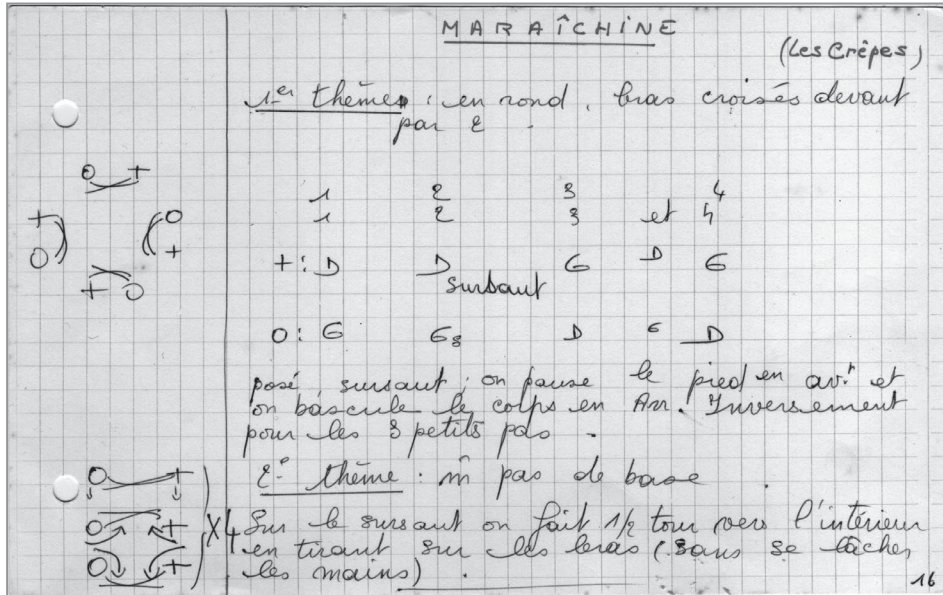 MARAÎCHINE
(Les Crêpes)
1er thème : en rond, bras croisés devant
par 2.
1 2 3 4
1 2 3 et 4
+ : D D G D G
sursaut
O : G Gs D G D
posé, sursaut ; on pause le pied en avt et
on bascule le corps en Arr. Inversement
pour les 3 petits pas.
2e thème : m̂ pas de base
Sur le sursaut on fait 1/2 tour vers l'intérieur
en tirant sur les bras (sans se lâcher
les mains).
O +
+ O
O +
+ O
O +
O +
O +
X4
16